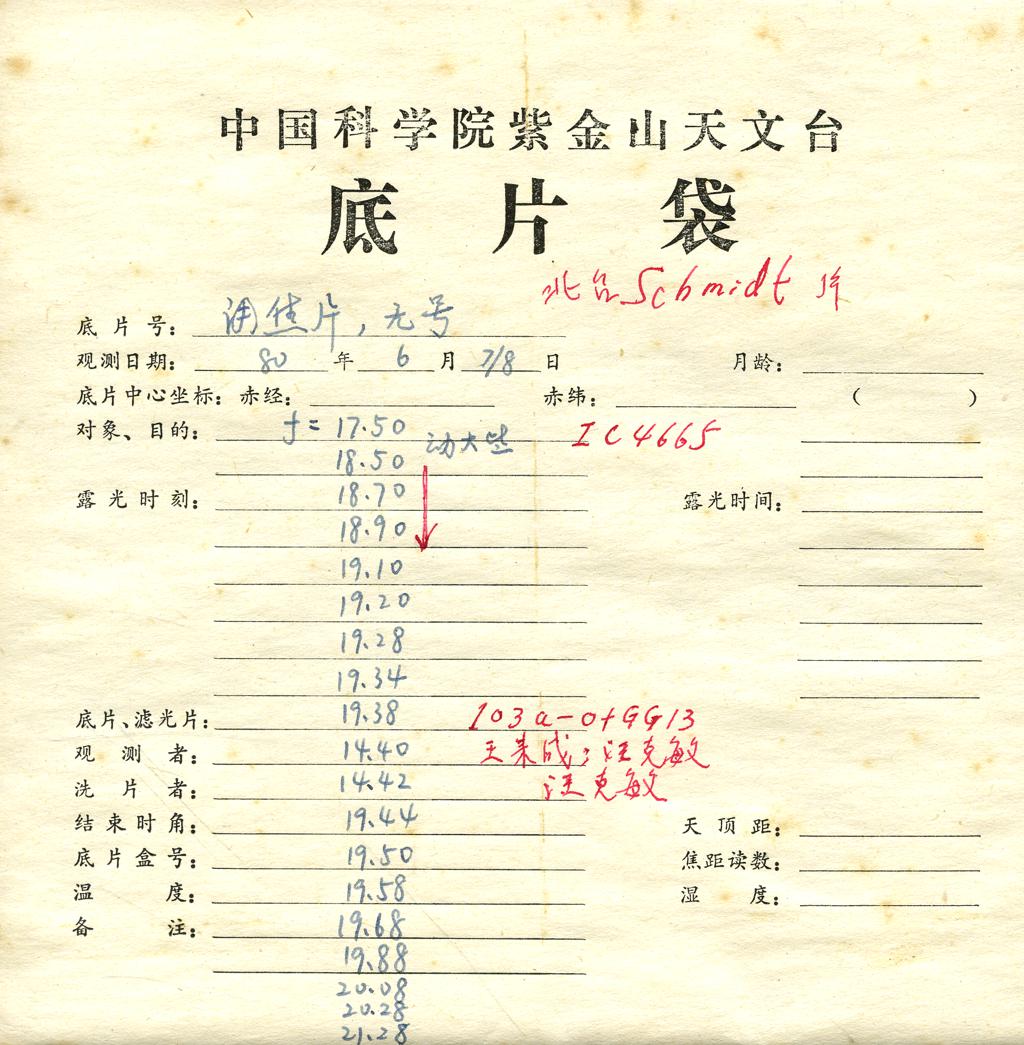 中国科学院紫金山天文台
底片袋
北台Schmidt片
底片号：调焦片，无号
观测日期：80年6月7/8日 月龄：
底片中心坐标：赤经： 赤纬： （ ）
对象、目的：f=17.50 IC4665
18.50 动大些
露光时刻：18.70 露光时间：
18.90
19.10
19.20
19.28
19.34
底片、滤光片：19.38 103a-0+GG13
观测者：14.40 汪克敏
洗片者：14.42 汪克敏
结束时角：19.44 天顶距：
底片盒号：19.50 焦距读数：
温度：19.58 湿度：
备注：19.68
19.88
20.08
20.28
21.28